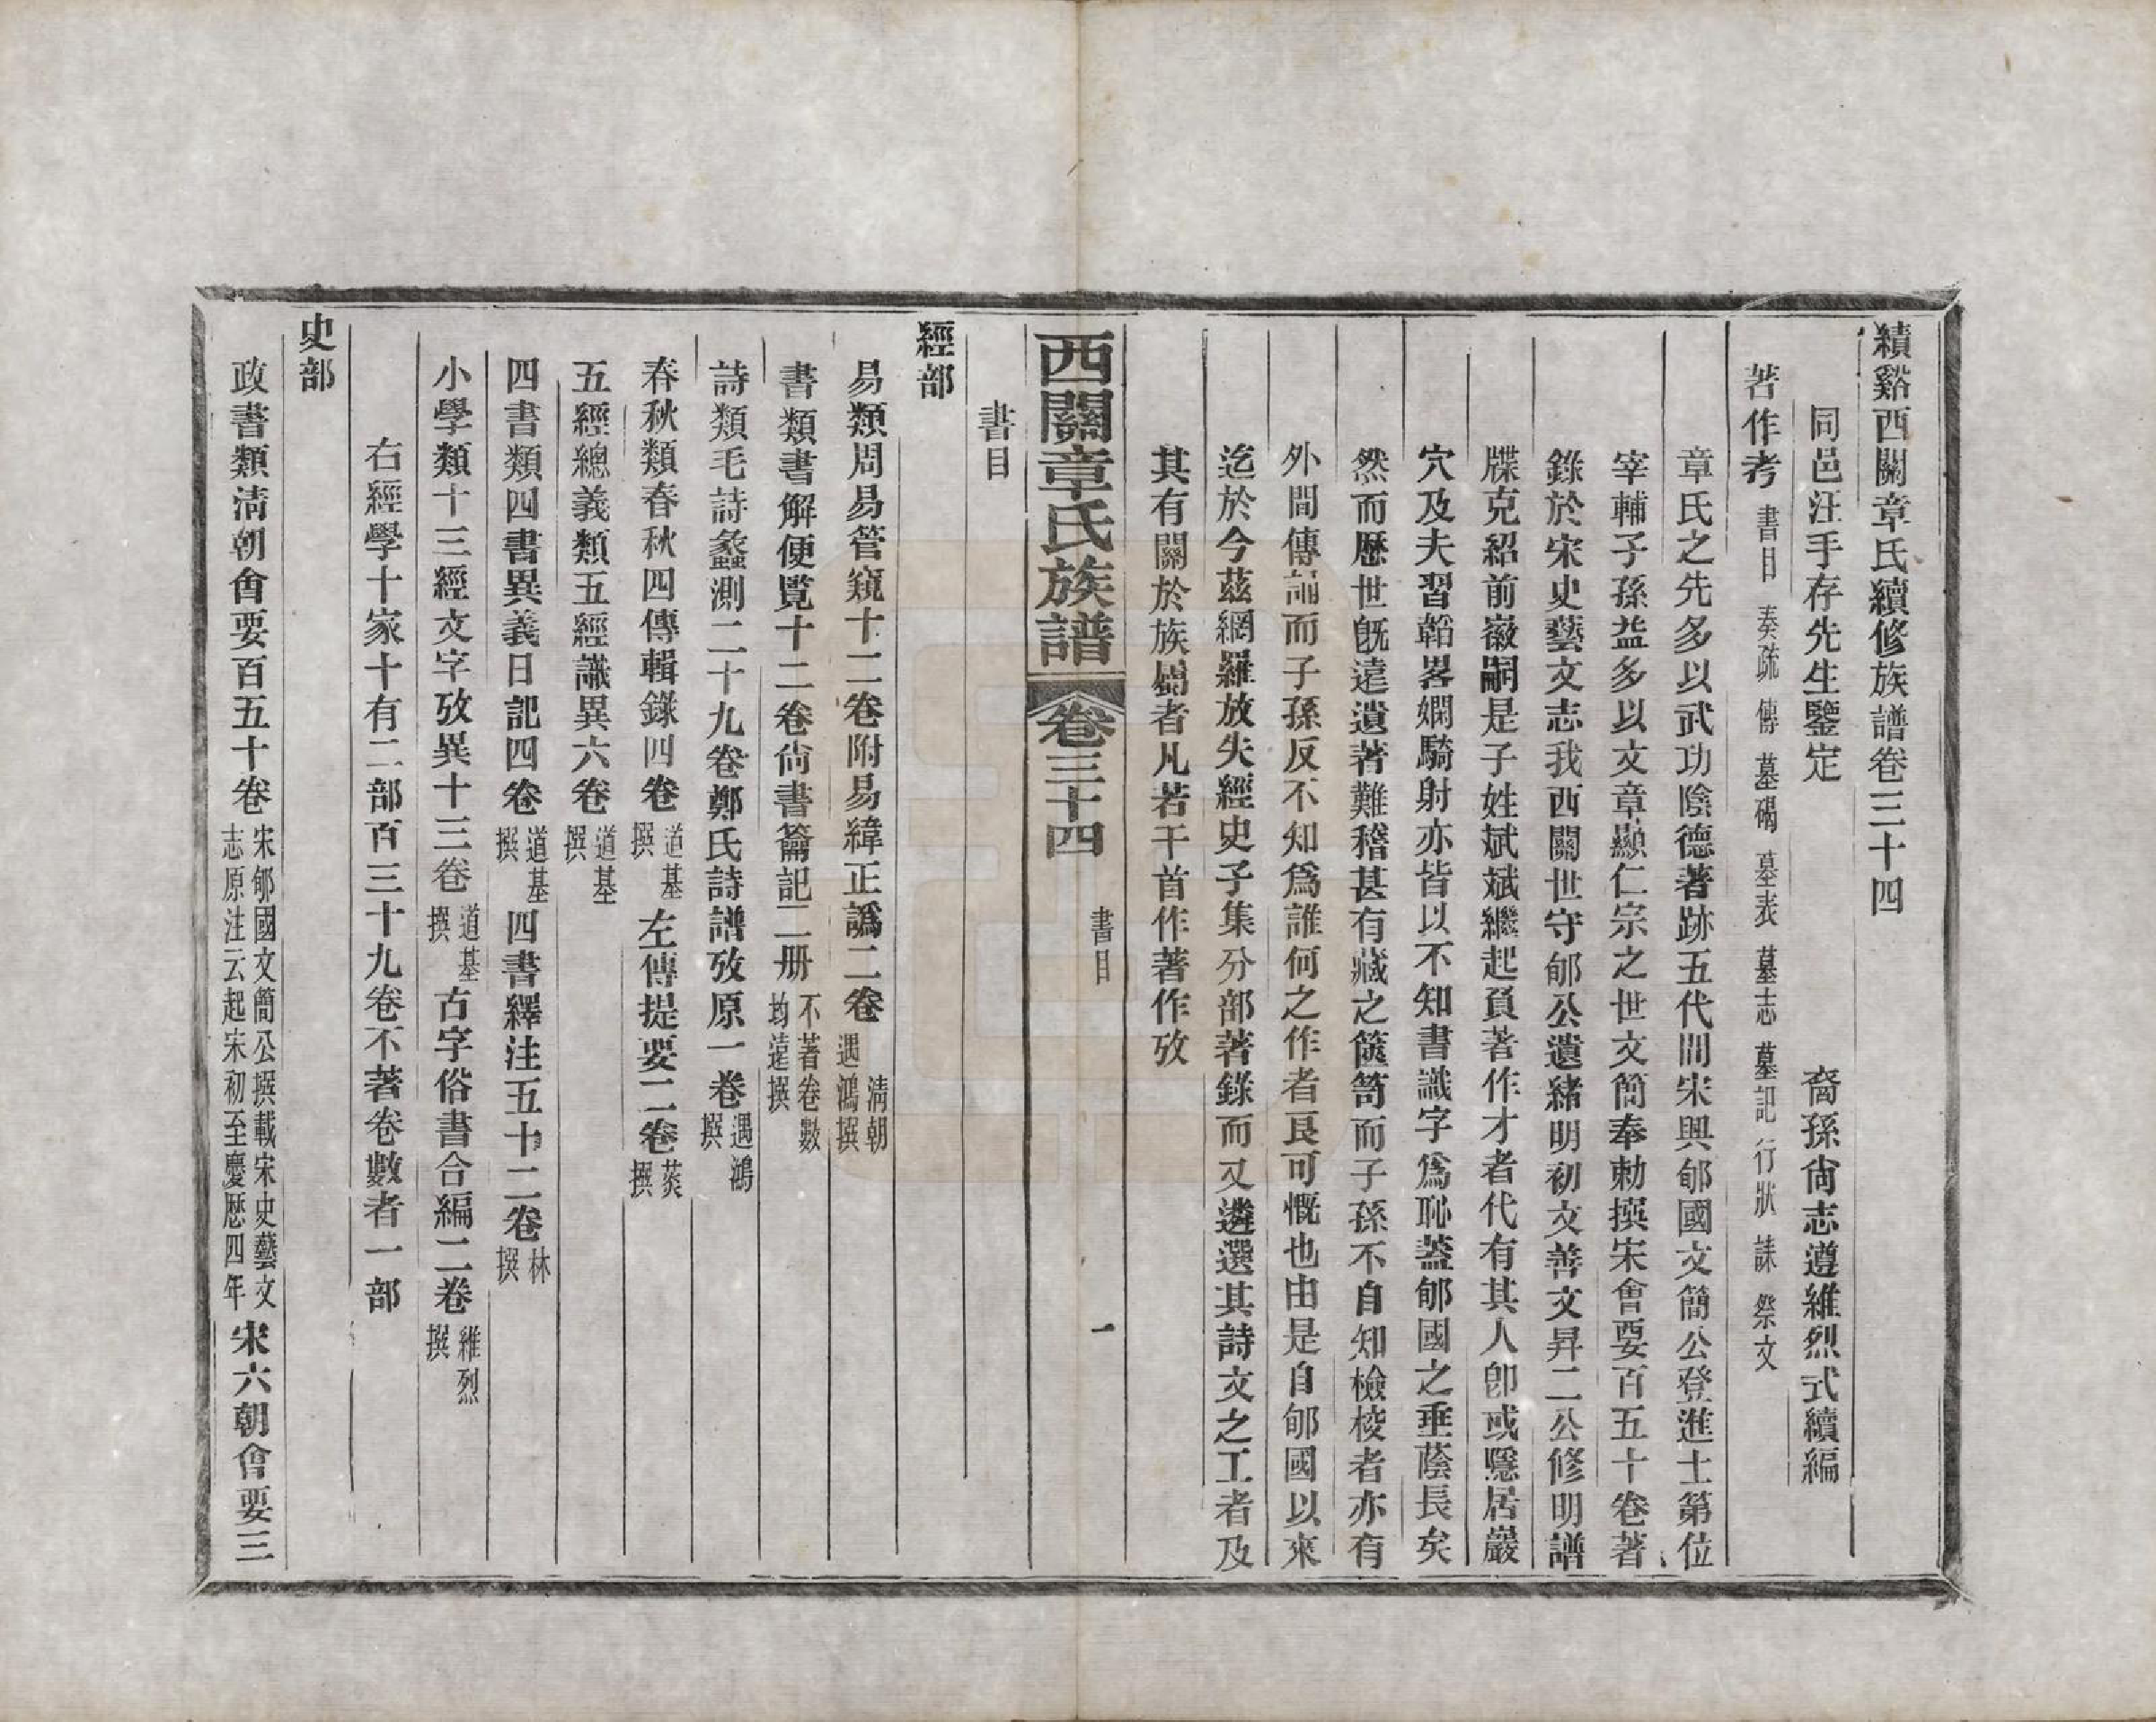 績谿西關章氏續修族譜卷三十四
同邑汪手存先生鑒定　裔孫尚志遵維烈式續編
著作考　書目　奏疏　傳　墓碣　墓表　墓志　墓記　行狀　誄　祭文
章氏之先多以武功陰德著跡五代間宋興郇國文簡公登進士第位
宰輔子孫益多以文章顯仁宗之世文簡奉勅撰宋會要百五十卷著
錄於宋史藝文志我西關世守郇公遺緒明初文善文昇二公修明譜
牒克紹前徽嗣是子姓斌斌繼起負著作才者代有其人卽或隱居巖
穴及夫習韜畧嫻騎射亦皆以不知書識字爲恥葢郇國之垂蔭長矣
然而歷世旣遠遺著難稽甚有藏之篋笥而子孫不自知檢校者亦有
外間傳誦而子孫反不知爲誰何之作者良可慨也由是自郇國以來
迄於今茲網羅放失經史子集分部著錄而又遴選其詩文之工者及
其有關於族屬者凡若干首作著作攷
西關章氏族譜　卷三十四　書目　一
書目
經部
易類周易管窺十二卷附易緯正譌二卷　清朝遇鴻撰
書類書解便覽十二卷尙書籥記二册　不著卷數均遠撰
詩類毛詩蠡測二十九卷鄭氏詩譜攷原一卷　遇鴻撰
春秋類春秋四傳輯錄四卷　道基撰　左傳提要二卷　菼撰
五經總義類五經識異六卷　道基撰
四書類四書異義日記四卷　道基撰　四書繹注五十二卷　林撰
小學類十三經文字攷異十三卷　道基撰　古字俗書合編二卷　維烈撰
右經學十家十有二部百三十九卷不著卷數者一部
史部
政書類清朝會要百五十卷　宋郇國文簡公撰載宋史藝文志原注云起宋初至慶歷四年　宋六朝會要三